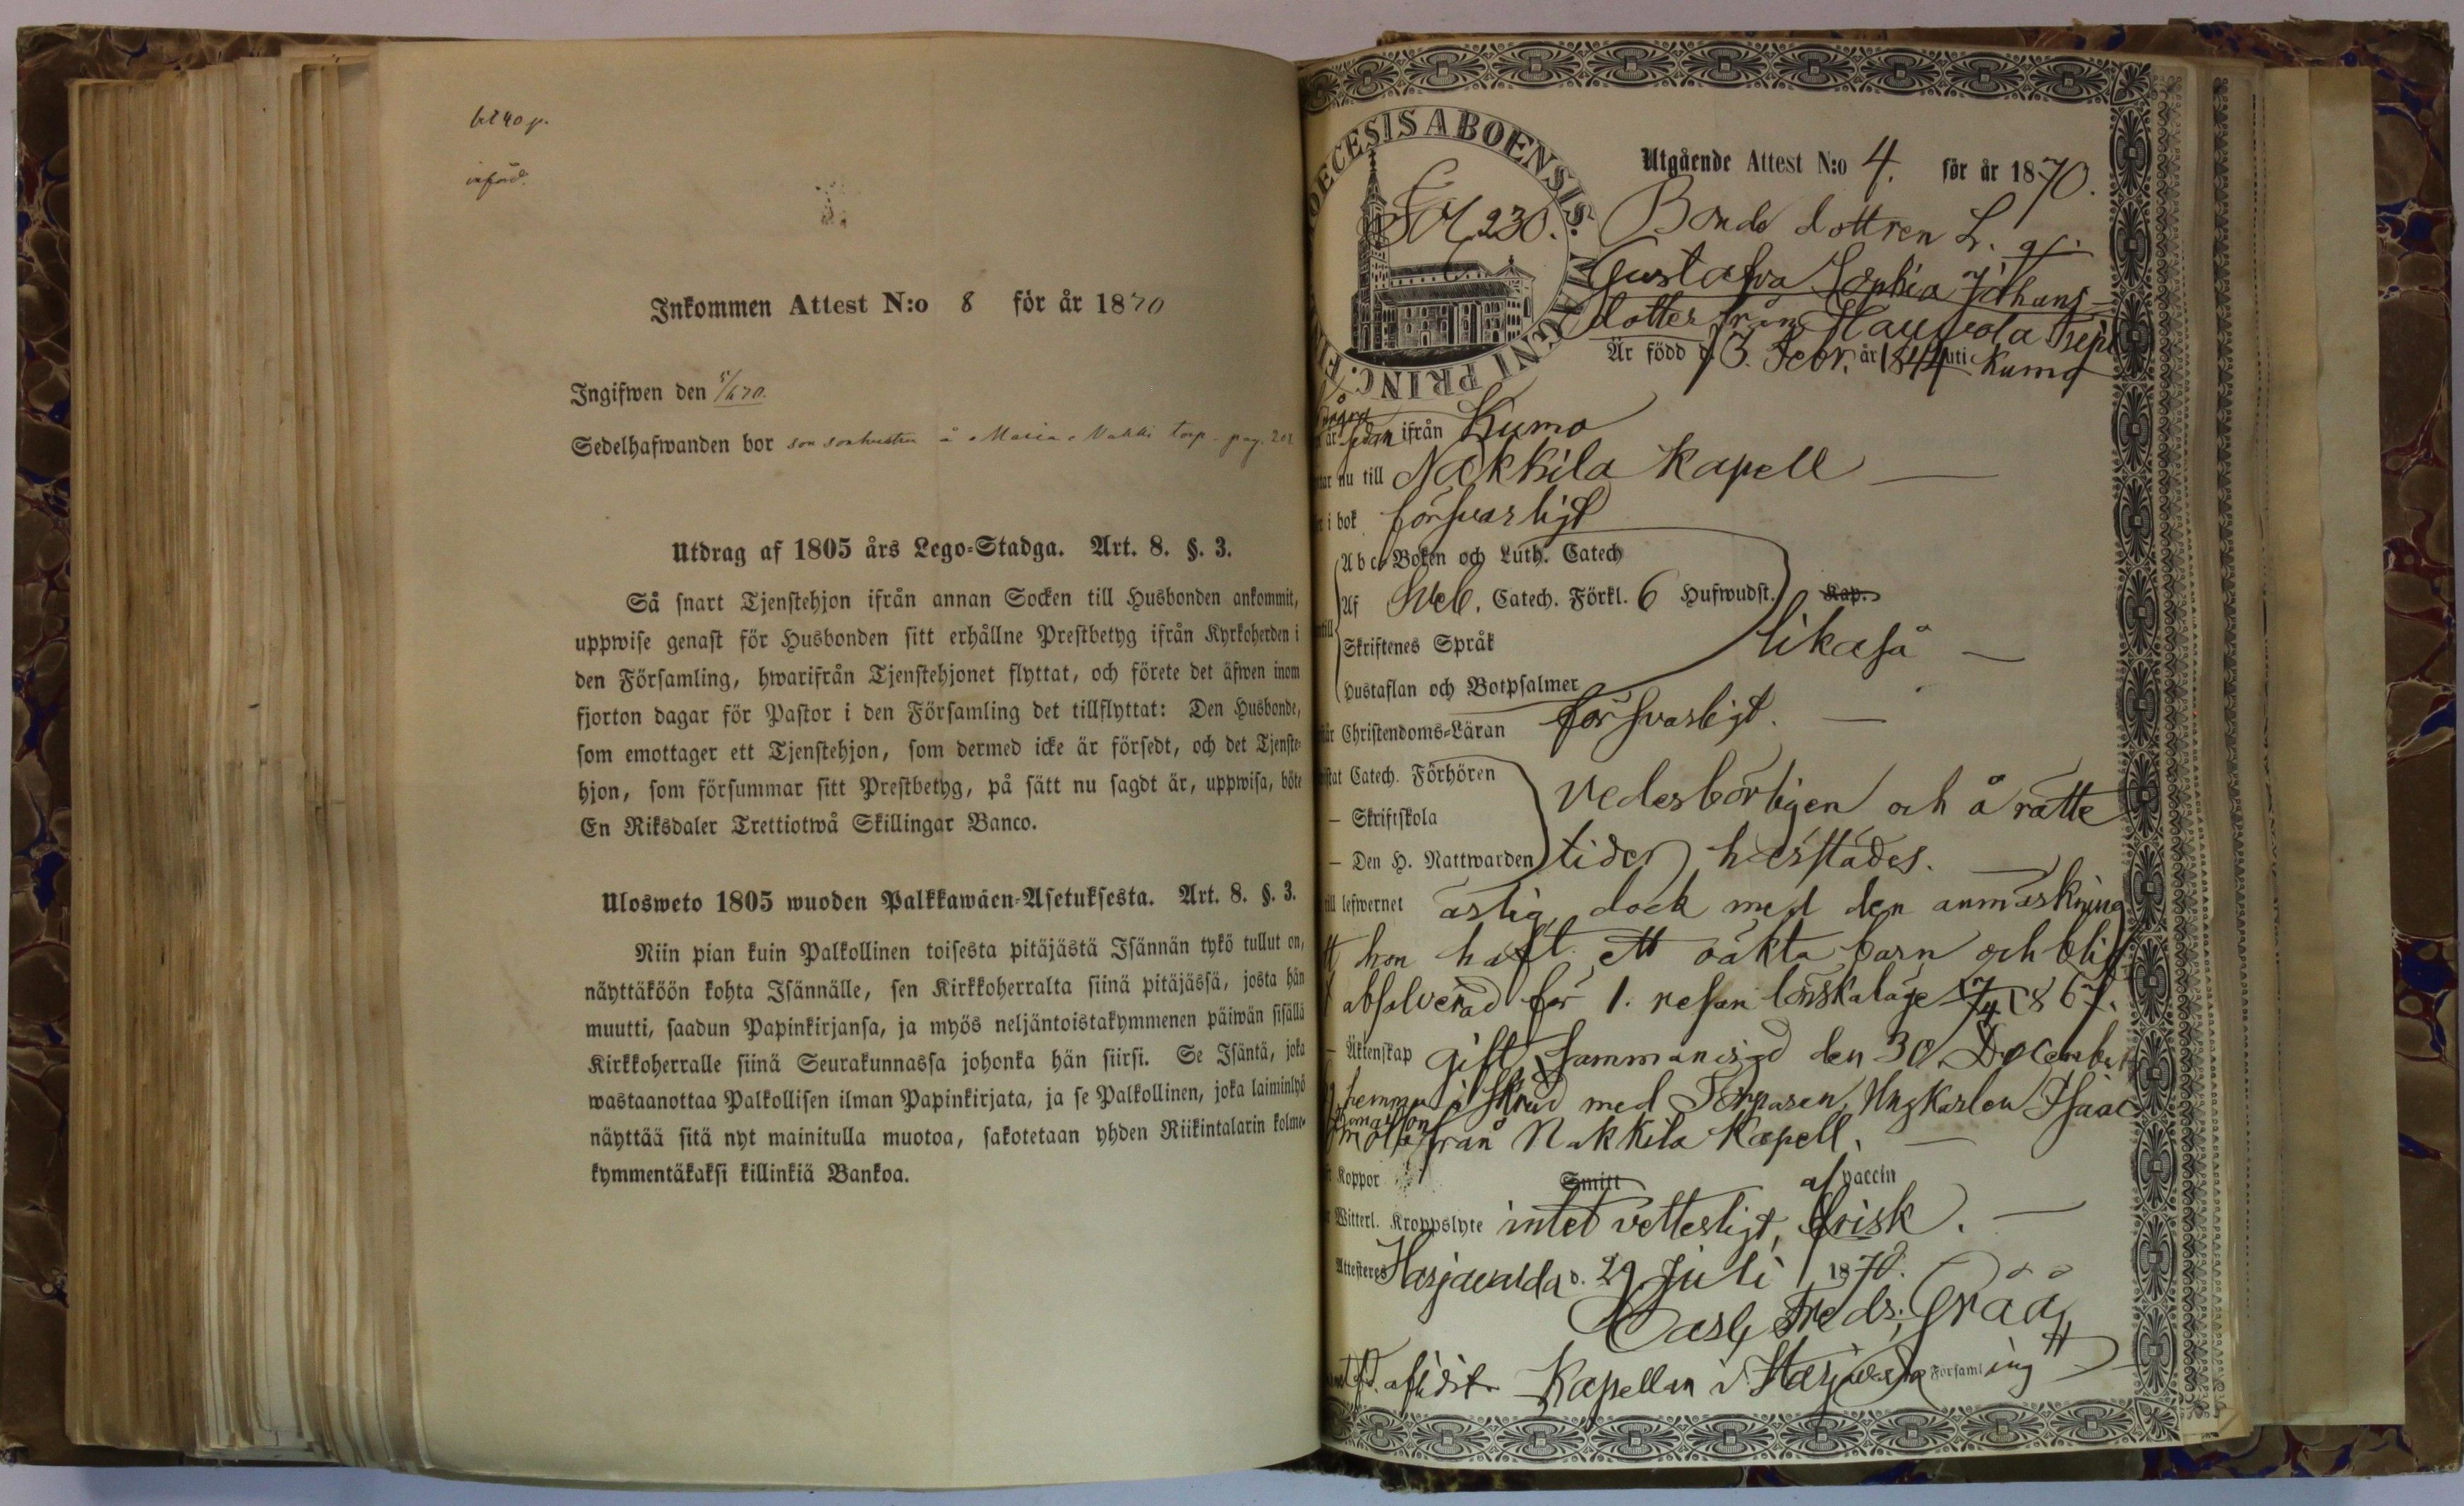 införd.
Inkommen Attest N:o 8 för år 1870
Ingifwen den 5/8 70.
Sedelhafwanden bor son sonhustru å Maria Nakki torp. pag. 201
Utdrag af 1805 års Lego-Stadga. Art. 8. §. 3.
Så snart Tjenstehjon ifrån annan Socken till Husbonden ankommit,
uppwise genast för Husbonden sitt erhållne Prestbetyg ifrån Kyrkoherden i
den Församling, hwarifrån Tjenstehjonet flyttat, och förete det äfwen inom
fjorton dagar för Pastor i den Församling det tillflyttat: Den Husbonde,
som emottager ett Tjenstehjon, som dermed icke är försedt, och det Tjenste-
hjon, som försummar sitt Prestbetyg, på sätt nu sagdt är, uppwisa, böte
En Riksdaler Trettiotwå Skillingar Banco.
Ulosweto 1805 wuoden Palkkawäen-Asetuksesta. Art. 8. §. 3.
Niin pian kuin Palkollinen toisesta pitäjästä Isännän tykö tullut on,
näyttäköön kohta Isännälle, sen Kirkkoherralta siinä pitäjässä, josta hän
muutti, saadun Papinkirjansa, ja myös neljäntoistakymmenen päiwän sisällä
Kirkkoherralle siinä Seurakunnassa johonka hän siirsi. Se Isäntä, joka
wastaanottaa Palkollisen ilman Papinkirjata, ja se Palkollinen, joka laiminlyö
näyttää sitä nyt mainitulla muotoa, sakotetaan yhden Riikintalarin kolme-
kymmentäkaksi killinkiä Bankoa.
OECESIS ABOENSIS.
230.
Utgående Attest N:o 4. för år 1870.
Bonde dottren L. qv.
Gustafva Sophia Johans-
dotter från
Är född d. 3. Febr. år 1844 uti Kumo
år sedan ifrån Kumo
nu till Nakkila Kapell
i bok försvarligt
Abc-Boken och Luth. Catech
Af Sveb. Catech. Förkl. 6 Hufwudst. Kap.
Skriftenes Språk likaså
Hustaflan och Botpsalmer
Christendoms-Läran försvarligt.
Catech. Förhören
vederbörligen och å rätte
– Skriftskola
– Den H. Nattwarden tider härstädes.
till lefwernet ärlig, dock med den anmärkning
att hon haft ett oäkta barn och blif
absolverad för 1. resan lönskaläge 1867.
– Äktenskap gift, sammanvigd den 30 December
med Torparen, Ungkarlen Isaac
från Nakkila Kapell.
Koppor Smitt af vaccin
Witterl. Kroppslyte intet vetterligt, frisk.
Attesteres Harjavalda d. 29 Juli 1870.
Carl Fredr. Grää
Kapellan i Harjavalda Församling